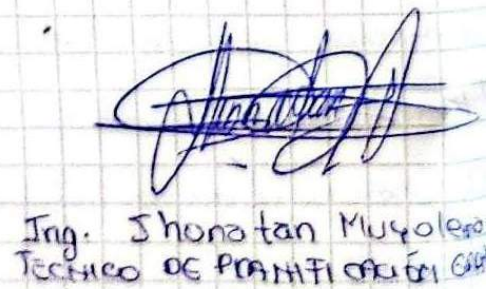 Ing. Jhonatan Muyolema
TECNICO DE PLANIFICACIÓN